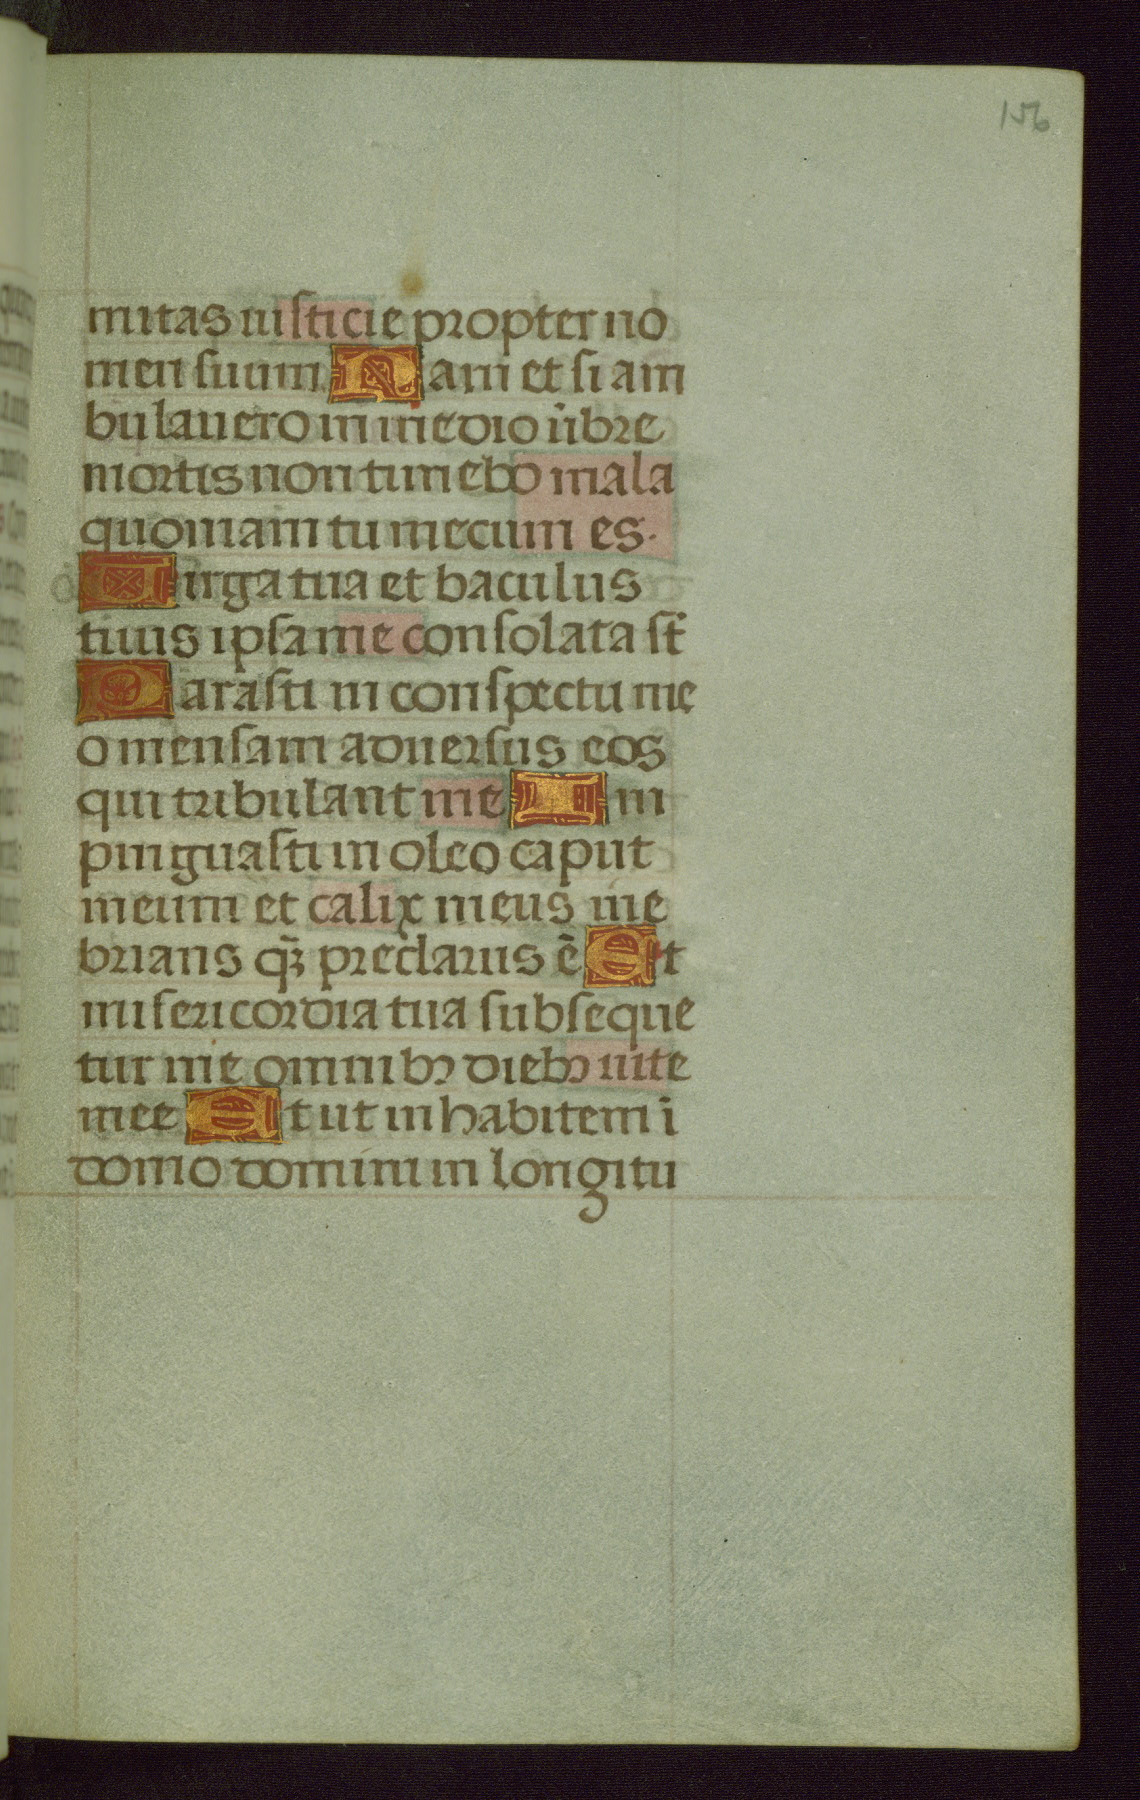 156
mitas iusticie propter no
men suum Nam et si am
bulauero in medio ūbre
mortis non timebo mala
quoniam tu mecum es.
Virga tua et baculus
tuus ipsa me consolata st̄
Parasti in conspectu me
o mensam aduersus eos
qui tribulant me In
pinguasti in oleo caput
meum et calix meus ine
brians q̄ꝫ preclarus ē Et
misericordia tua subseque
tur me omnibꝰ diebꝰ uite
mee Et ut inhabitem ī
domo domini in longitu